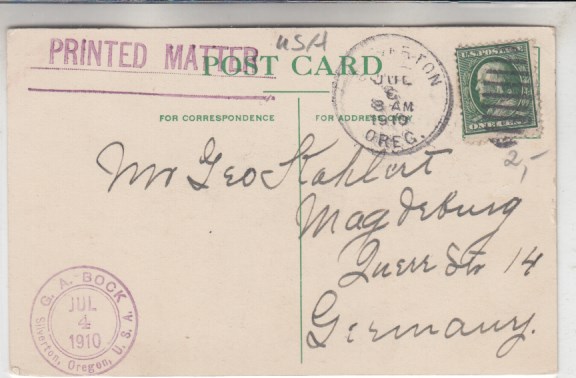 PRINTED MATTER
USA
POST CARD
FOR CORRESPONDENCE
FOR ADDRESS ONLY
JUL
6
8 AM
1910
OREG.
U.S. POSTAGE
ONE CENT
2,-
Mr Geo Kahlert
Magdeburg
Querr Str 14
Germany.
G. A. BOCK
JUL
4
1910
Silverton, Oregon, U. S. A.